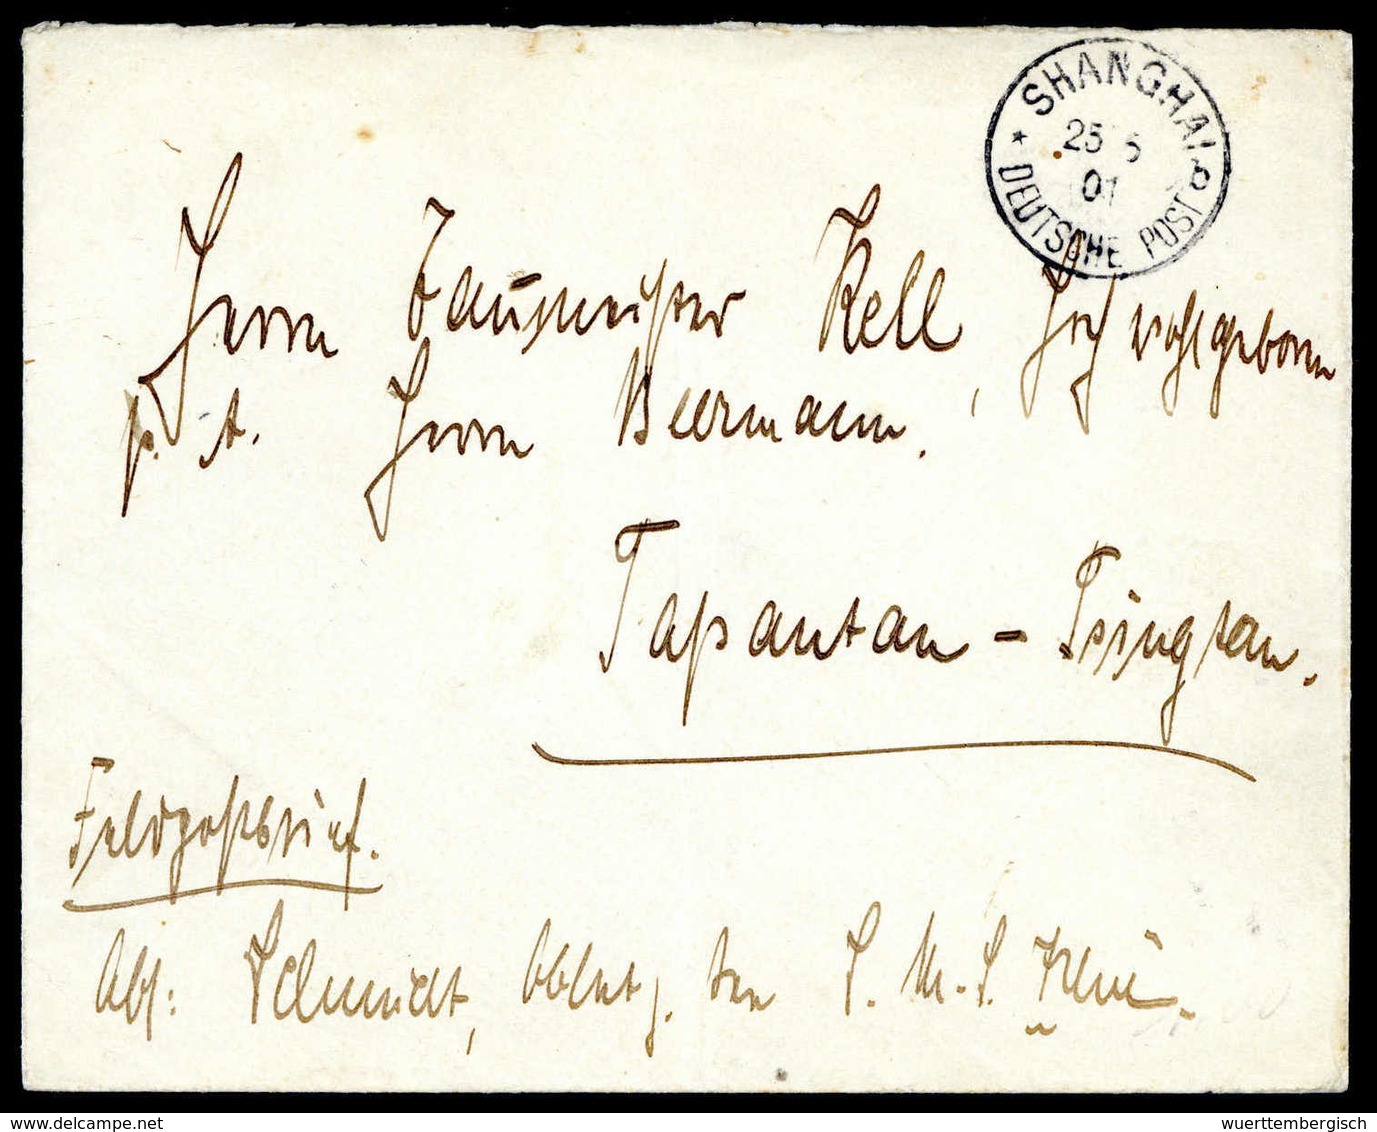 SHANGHAI
25 5
01
* DEUTSCHE POST
Herrn Baumeister Kell, Hochwohlgeboren
p. A. Herrn Beermann.
Tapautau - Tsingtau.
Feldpostbrief.
Abs: Schmidt, Obltz. der S. M. S.
wuerttembergisch